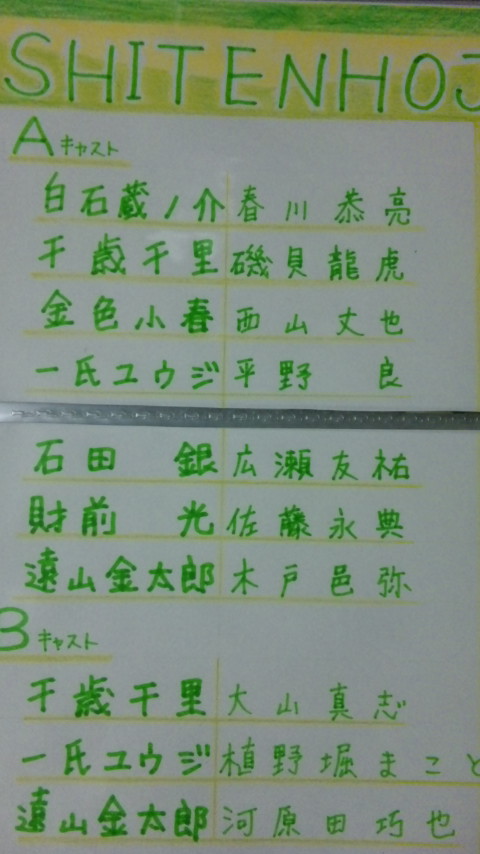 SHITENHOJ
Aキャスト
白石蔵ノ介 春川恭亮
千歳千里 磯貝龍虎
金色小春 西山丈也
一氏ユウジ 平野 良
石田 銀 広瀬友祐
財前 光 佐藤永典
遠山金太郎 木戸邑弥
Bキャスト
千歳千里 大山真志
一氏ユウジ 植野堀まこと
遠山金太郎 河原田巧也